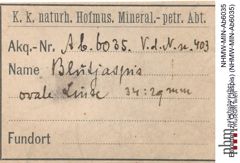 K. k. naturh. Hofmus. Mineral.-petr. Abt.
Akq.-Nr. A.b. 6035. V.d.N.n. 403
Name Blutjaspis
ovale Linse 34:29 mm
Fundort
NHMW-MIN-Ab6035
(NHMW-MIN-Ab6035)
nhm